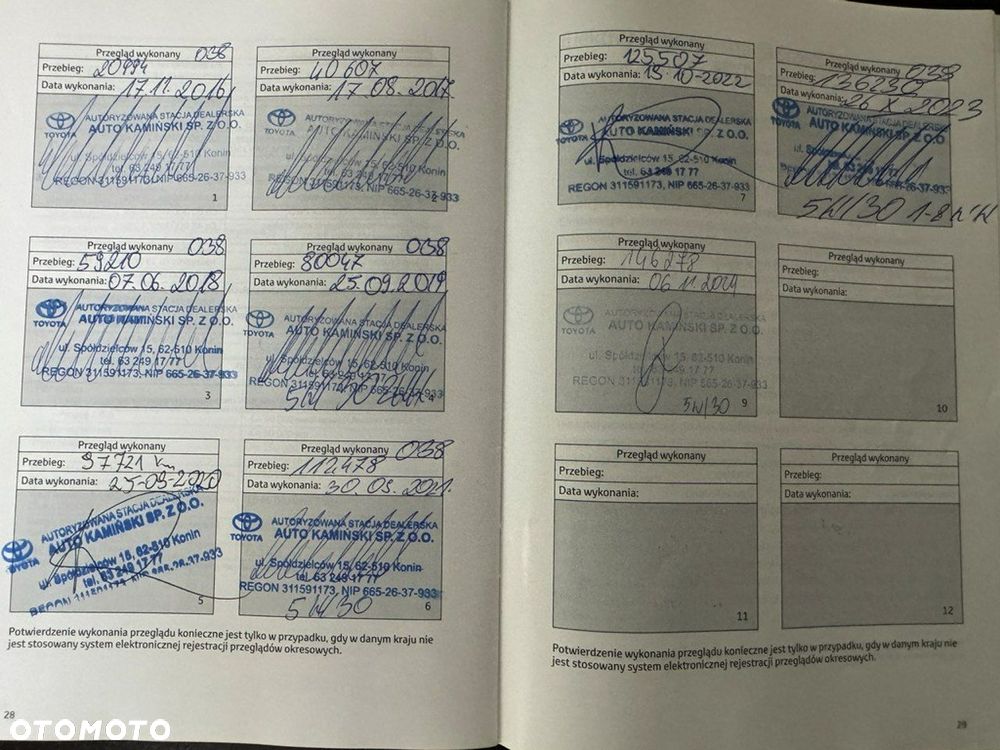 Przegląd wykonany 038
Przebieg: 20494
Data wykonania: 17.11.2016
TOYOTA
AUTORYZOWANA STACJA DEALERSKA
AUTO KAMIŃSKI SP. Z O.O.
ul. Spółdzielców 15, 62-510 Konin
tel. 63 249 17 77
REGON 311591173, NIP 665-26-37-933
1
Przegląd wykonany
Przebieg: 40607
Data wykonania: 17 08.2017
TOYOTA
AUTORYZOWANA STACJA DEALERSKA
AUTO KAMIŃSKI SP. Z O.O.
ul. Spółdzielców 15, 62-510 Konin
tel. 63 249 17 77
REGON 311591173, NIP 665-26-37-933
2
Przegląd wykonany 038
Przebieg: 59210
Data wykonania: 07.06.2018
TOYOTA
AUTORYZOWANA STACJA DEALERSKA
AUTO KAMIŃSKI SP. Z O.O.
ul. Spółdzielców 15, 62-510 Konin
tel. 63 249 17 77
REGON 311591173, NIP 665-26-37-933
3
Przegląd wykonany 038
Przebieg: 80047
Data wykonania: 25.09.2019
TOYOTA
AUTORYZOWANA STACJA DEALERSKA
AUTO KAMIŃSKI SP. Z O.O.
ul. Spółdzielców 15, 62-510 Konin
tel. 63 249 17 77
REGON 311591173, NIP 665-26-37-933
5W30
4
Przegląd wykonany
Przebieg: 97721 km
Data wykonania: 25-09-2020
TOYOTA
AUTORYZOWANA STACJA DEALERSKA
AUTO KAMIŃSKI SP. Z O.O.
ul. Spółdzielców 15, 62-510 Konin
tel. 63 249 17 77
REGON 311591173, NIP 665-26-37-933
5
Przegląd wykonany 038
Przebieg: 112478
Data wykonania: 30.09.2021.
TOYOTA
AUTORYZOWANA STACJA DEALERSKA
AUTO KAMIŃSKI SP. Z O.O.
ul. Spółdzielców 15, 62-510 Konin
tel. 63 249 17 77
REGON 311591173, NIP 665-26-37-933
5W/30
6
Potwierdzenie wykonania przeglądu konieczne jest tylko w przypadku, gdy w danym kraju nie
jest stosowany system elektronicznej rejestracji przeglądów okresowych.
28
Przegląd wykonany
Przebieg: 125507
Data wykonania: 13-10-2022
TOYOTA
AUTORYZOWANA STACJA DEALERSKA
AUTO KAMIŃSKI SP. Z O.O.
ul. Spółdzielców 15, 62-510 Konin
tel. 63 249 17 77
REGON 311591173, NIP 665-26-37-933
7
Przegląd wykonany 038
Przebieg: 136230
Data wykonania: 26 X 2023
TOYOTA
AUTORYZOWANA STACJA DEALERSKA
AUTO KAMIŃSKI SP. Z O.O.
5W/30
Przegląd wykonany
Przebieg: 146278
Data wykonania: 06 11 2024
TOYOTA
AUTORYZOWANA STACJA DEALERSKA
AUTO KAMIŃSKI SP. Z O.O.
ul. Spółdzielców 15, 62-510 Konin
tel. 63 249 17 77
REGON 311591173, NIP 665-26-37-933
5W/30
9
Przegląd wykonany
Przebieg:
Data wykonania:
10
Przegląd wykonany
Przebieg:
Data wykonania:
11
Przegląd wykonany
Przebieg:
Data wykonania:
12
Potwierdzenie wykonania przeglądu konieczne jest tylko w przypadku, gdy w danym kraju nie
jest stosowany system elektronicznej rejestracji przeglądów okresowych.
29
OTOMOTO